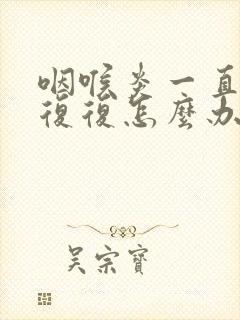 咽喉炎一直
復復怎麼办
吴宗寶